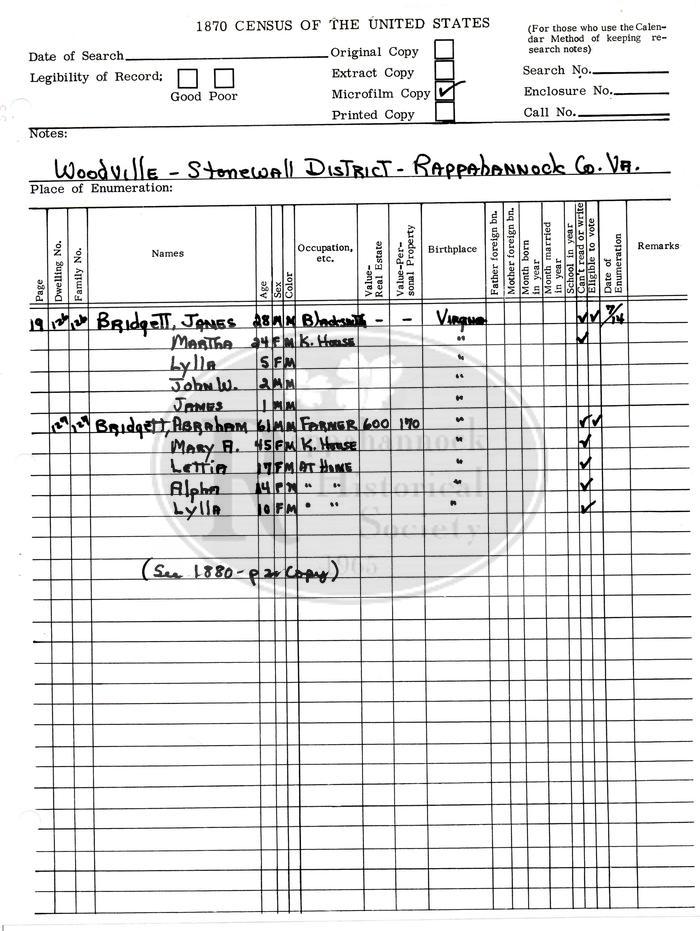 1870 CENSUS OF THE UNITED STATES
(For those who use the Calen-
dar Method of keeping re-
search notes)
Date of Search
Original Copy
Legibility of Record:
Extract Copy
Search No.
Good Poor
Microfilm Copy ✓
Enclosure No.
Printed Copy
Call No.
Notes:
Woodville - Stonewall District - Rappahannock Co. Va.
Place of Enumeration:
Page Dwelling No. Family No. Names Age Sex Color Occupation, etc. Value-Real Estate Value-Per-sonal Property Birthplace Father foreign bn. Mother foreign bn. Month born in year Month married in year School in year Can't read or write Eligible to vote Date of Enumeration Remarks
19 126 126 Bridgett, James 28 M M Blacksmith - - Virginia ✓ ✓ 7/14
Martha 24 F M K. House " ✓
Lylla 5 F M "
John W. 2 M M "
James 1 M M "
127 127 Bridgett, Abraham 61 M M Farmer 600 170 " ✓ ✓
Mary A. 45 F M K. House " ✓
Lettia 17 F M At Home " ✓
Alpha 14 F M " " " ✓
Lylla 10 F M " " " ✓
(See 1880 - p 20 Copy)
Rappahannock
Historical
Society
1965